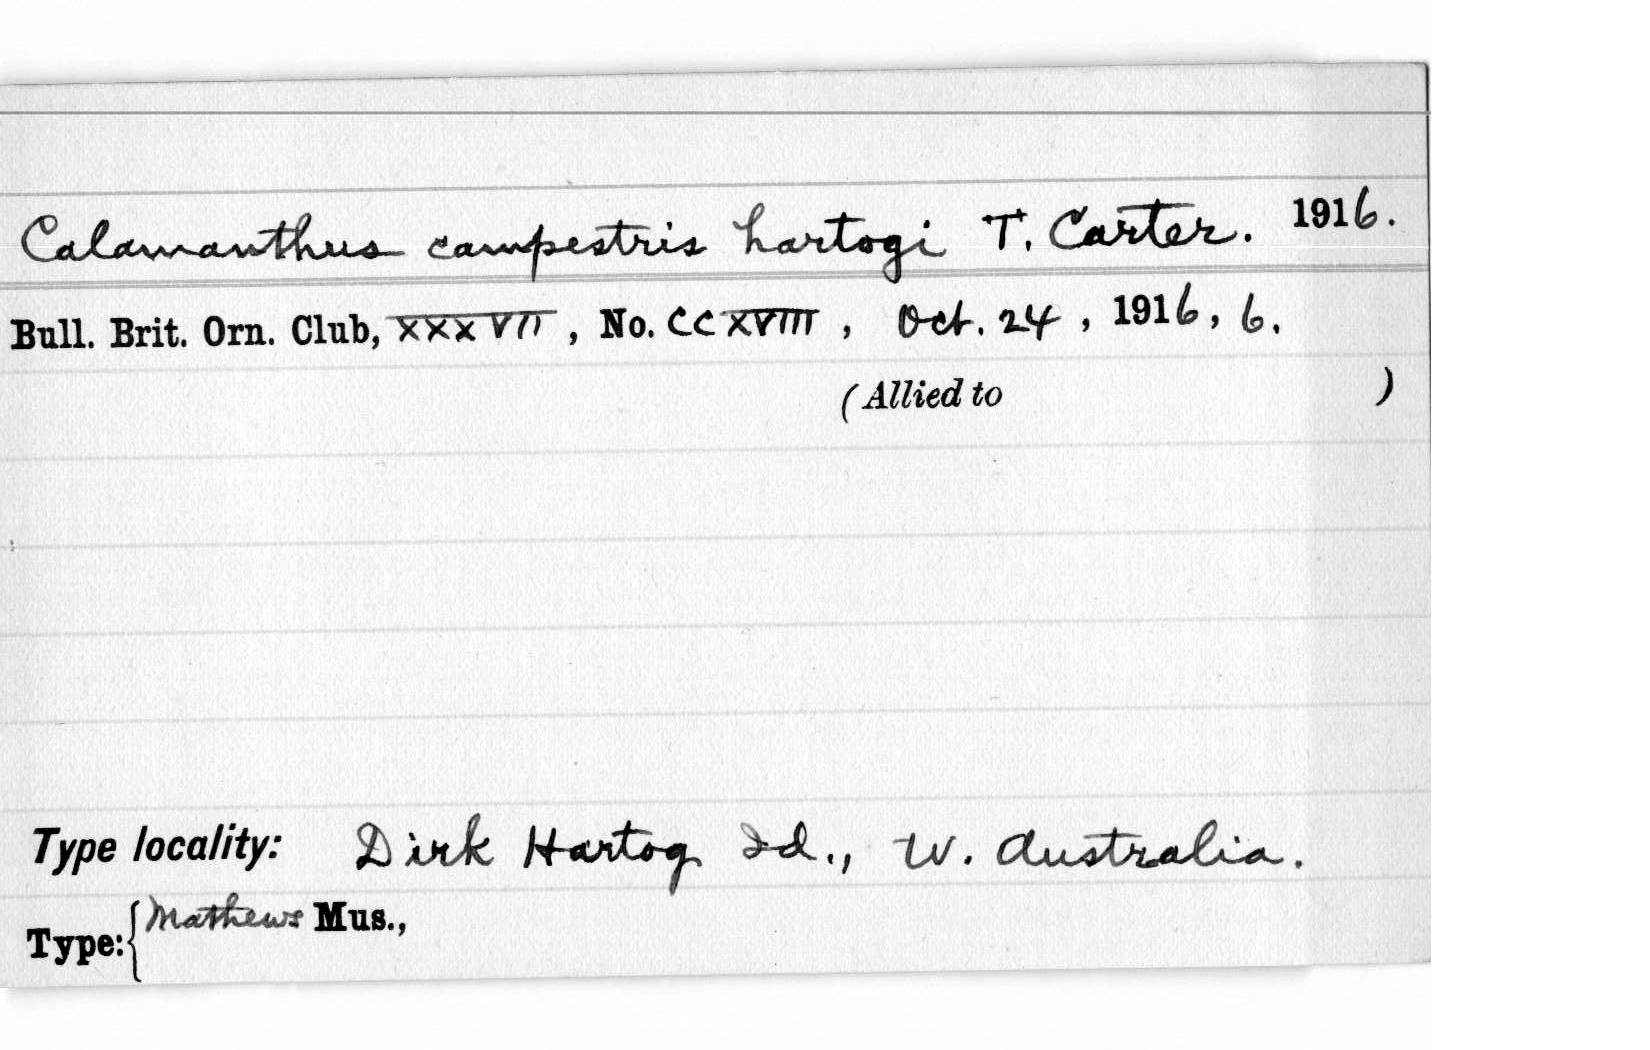 Calamanthus campestris hartogi T. Carter. 1916.
Bull. Brit. Orn. Club, XXXVII, No. CCXVIII, Oct. 24, 1916, 6.
(Allied to )
Type locality: Dirk Hartog Id., W. Australia.
Type: { Mathews Mus.,